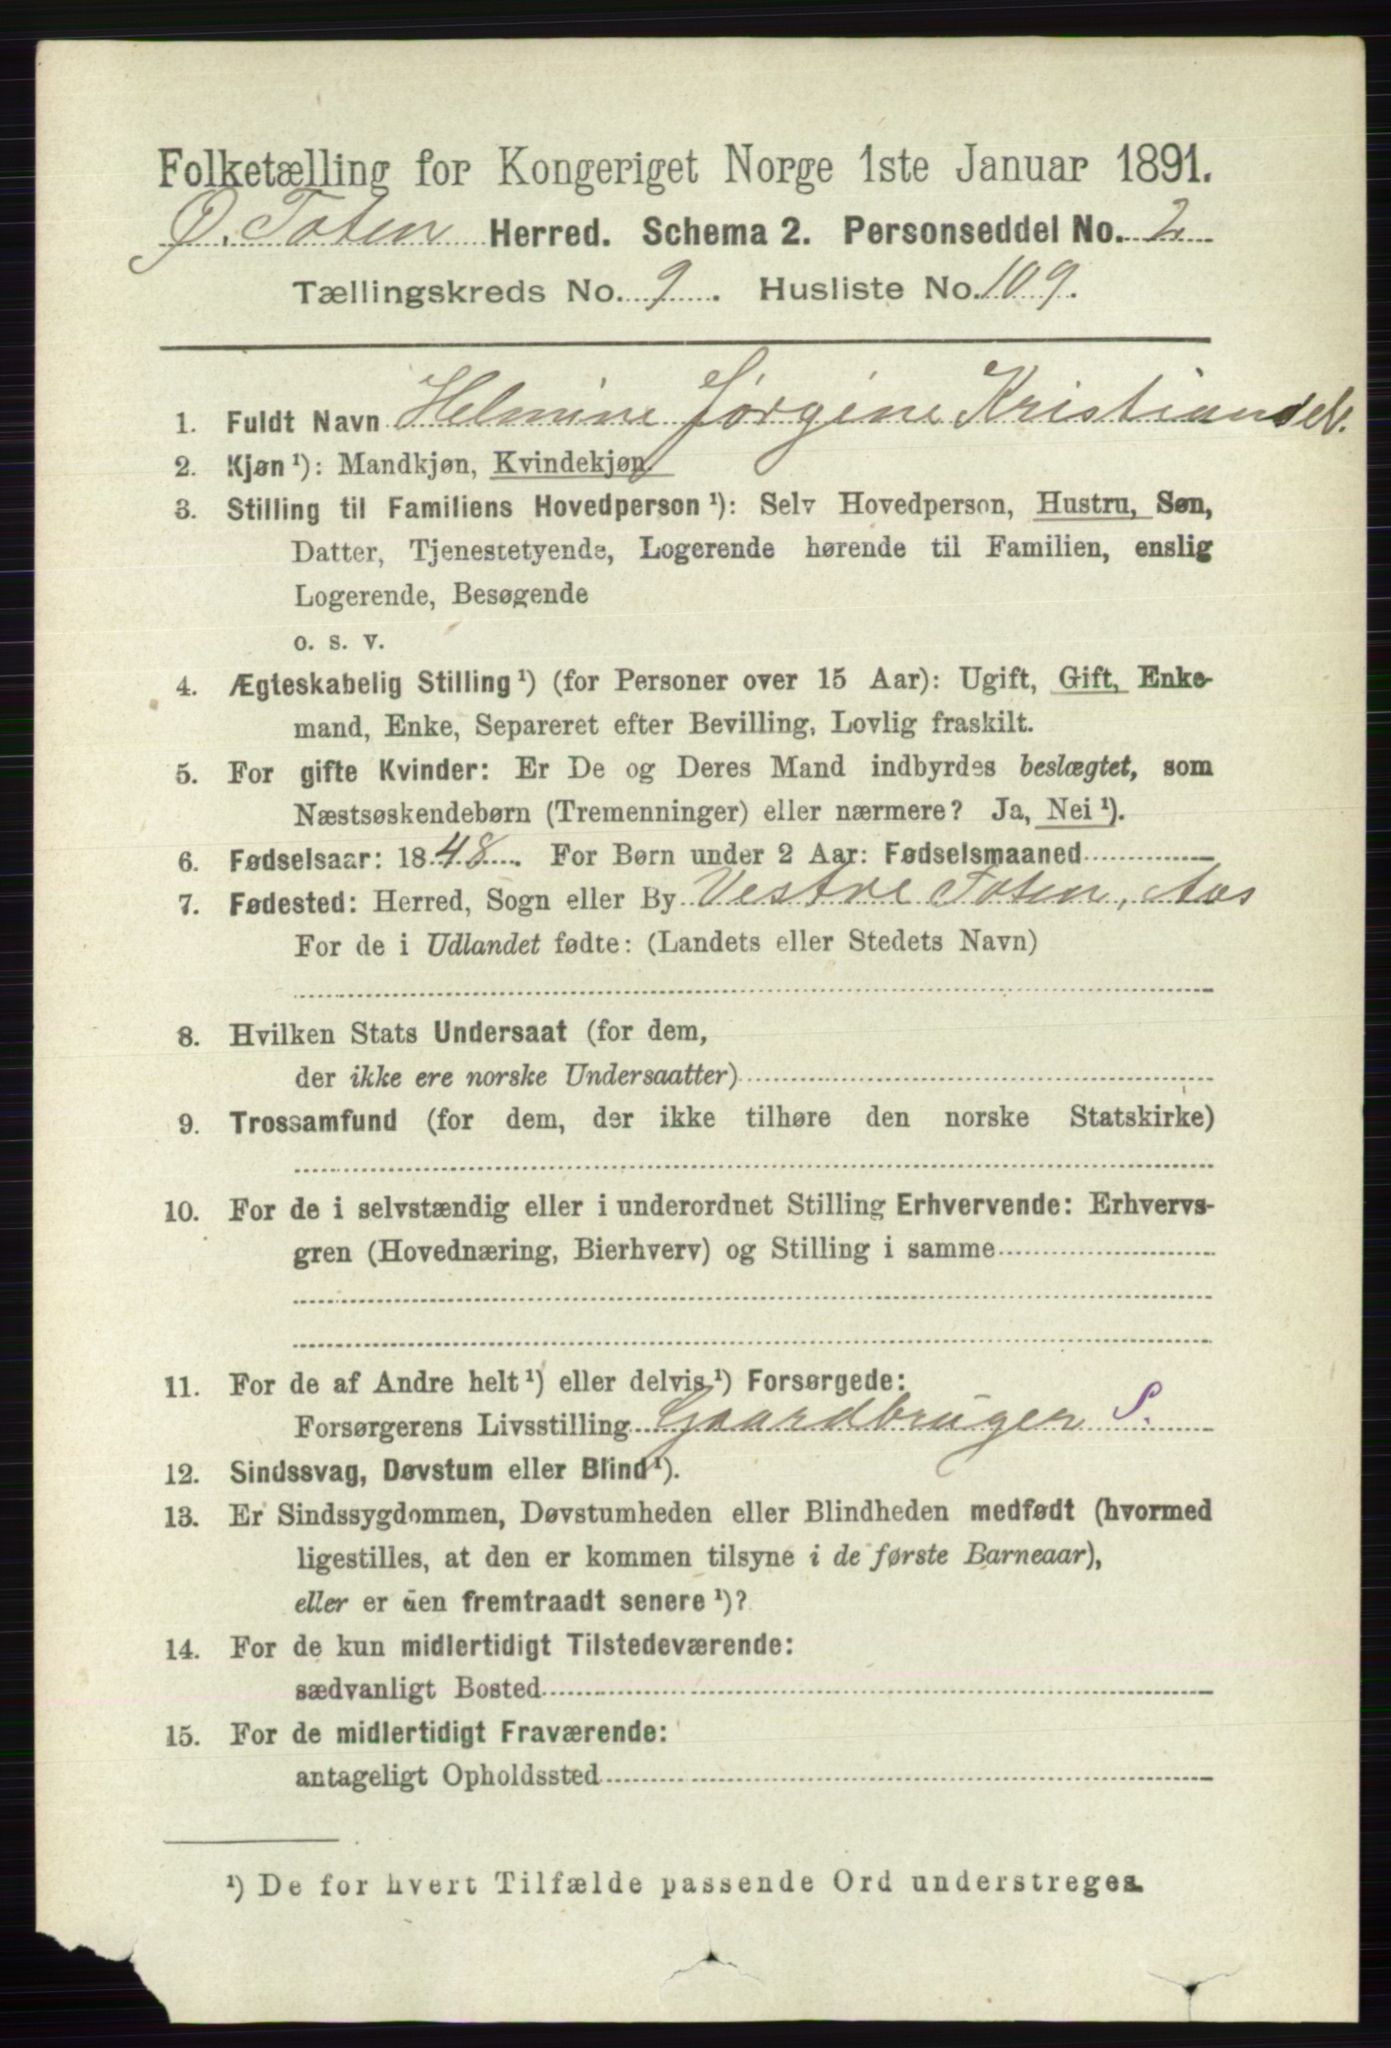 Folketælling for Kongeriget Norge 1ste Januar 1891.
Ø. Toten Herred. Schema 2. Personseddel No. 2
Tællingskreds No. 9. Husliste No. 109.
1. Fuldt Navn Helmine Jørgine Kristiansdr.
2. Kjøn¹): Mandkjøn, Kvindekjøn.
3. Stilling til Familiens Hovedperson¹): Selv Hovedperson, Hustru, Søn,
Datter, Tjenestetyende, Logerende hørende til Familien, enslig
Logerende, Besøgende
o. s. v.
4. Ægteskabelig Stilling¹) (for Personer over 15 Aar): Ugift, Gift, Enke-
mand, Enke, Separeret efter Bevilling, Lovlig fraskilt.
5. For gifte Kvinder: Er De og Deres Mand indbyrdes beslægtet, som
Næstsøskendebørn (Tremenninger) eller nærmere? Ja, Nei¹).
6. Fødselsaar: 1848. For Børn under 2 Aar: Fødselsmaaned
7. Fødested: Herred, Sogn eller By Vestre Toten, Aas
For de i Udlandet fødte: (Landets eller Stedets Navn)
8. Hvilken Stats Undersaat (for dem,
der ikke ere norske Undersaatter)
9. Trossamfund (for dem, der ikke tilhøre den norske Statskirke)
10. For de i selvstændig eller i underordnet Stilling Erhvervende: Erhvervs-
gren (Hovednæring, Bierhverv) og Stilling i samme
11. For de af Andre helt¹) eller delvis¹) Forsørgede:
Forsørgerens Livsstilling Gaardbruger S.
12. Sindssvag, Døvstum eller Blind¹).
13. Er Sindssygdommen, Døvstumheden eller Blindheden medfødt (hvormed
ligestilles, at den er kommen tilsyne i de første Barneaar),
eller er den fremtraadt senere¹)?
14. For de kun midlertidigt Tilstedeværende:
sædvanligt Bosted
15. For de midlertidigt Fraværende:
antageligt Opholdssted
¹) De for hvert Tilfælde passende Ord understreges.